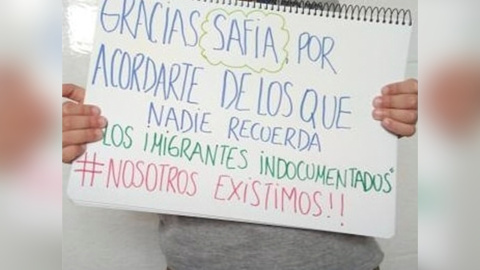 GRACIAS SAFIA, POR
ACORDARTE DE LOS QUE
NADIE RECUERDA
"LOS IMIGRANTES INDOCUMENTADOS"
#NOSOTROS EXISTIMOS!!